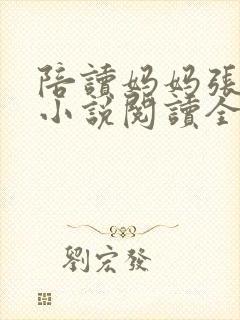 陪讀媽媽張
小說閱讀全
劉宏發